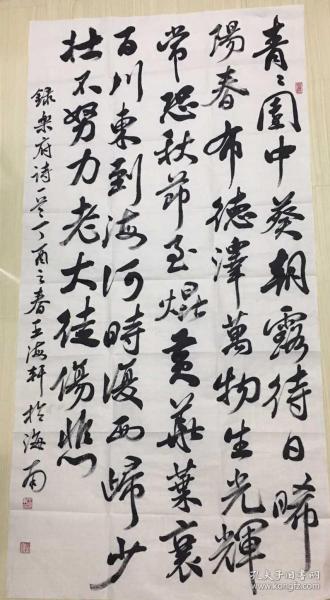 青々園中葵朝露待日晞
陽春布德澤萬物生光輝
常恐秋節至焜黄華葉衰
百川東到海何時復西歸少
壮不努力老大徒傷悲
錄樂府诗一首丁酉之春王海軒於海南
孔夫子旧书网